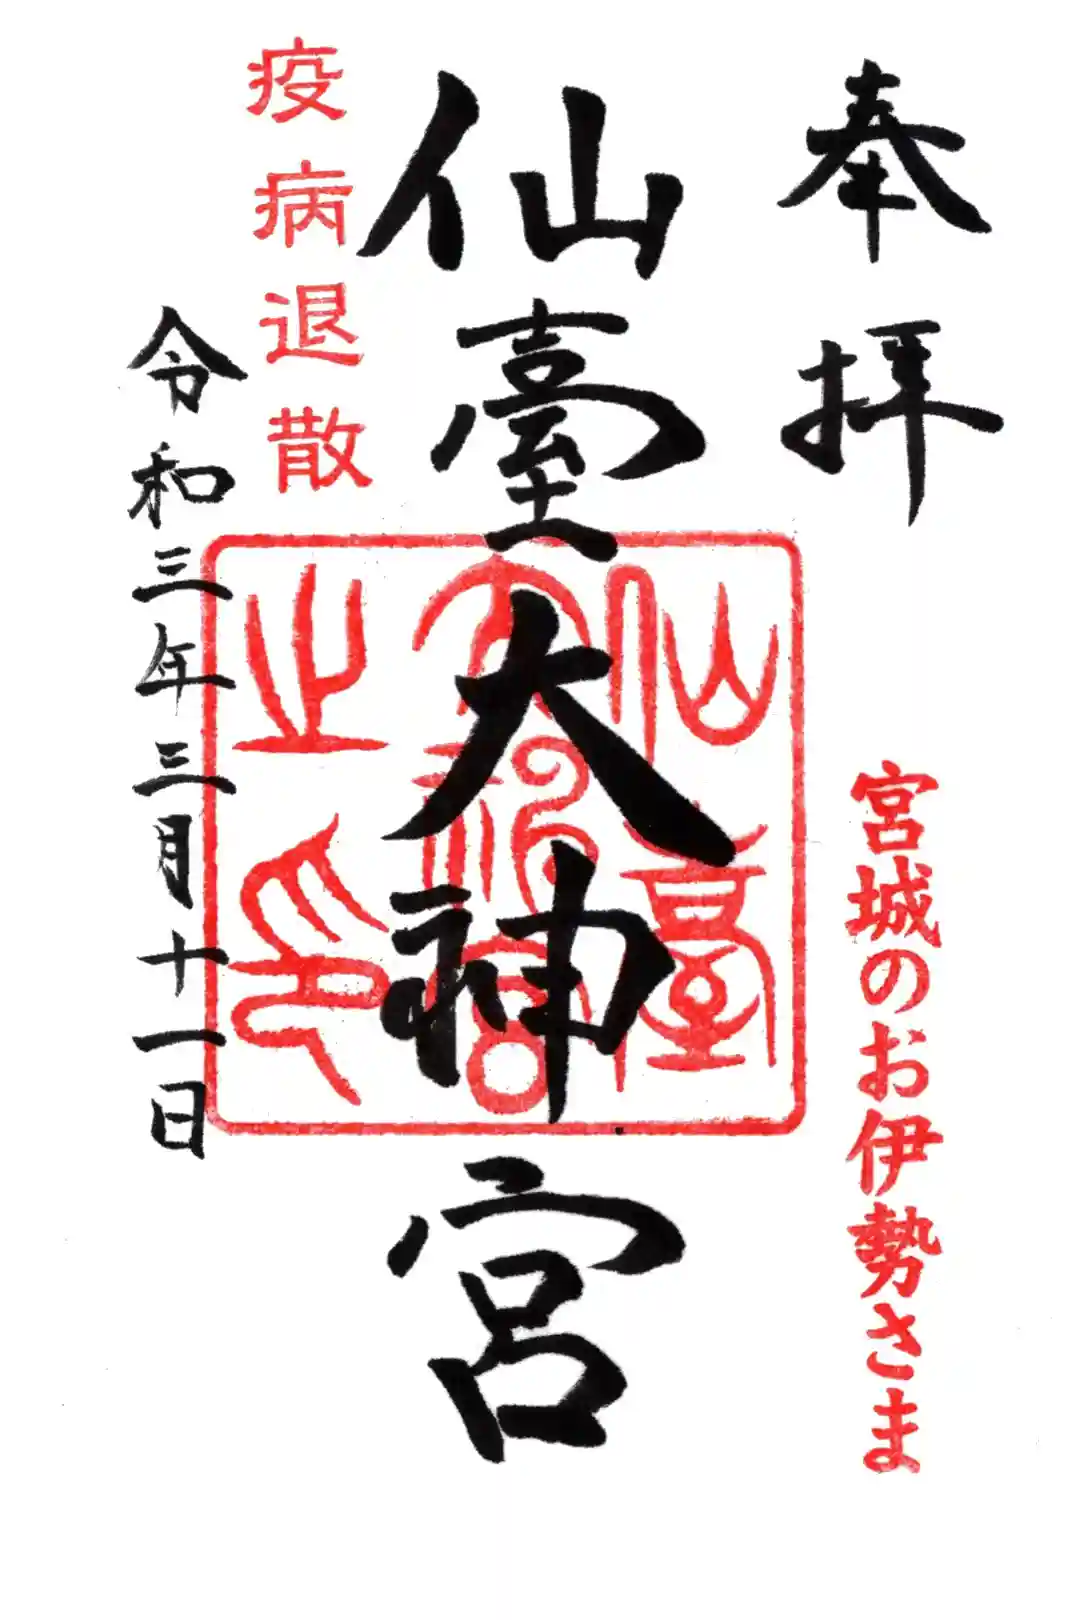 奉拝
宮城のお伊勢さま
仙臺大神宮
仙臺
大神宮
之印
疫病退散
令和三年三月十一日